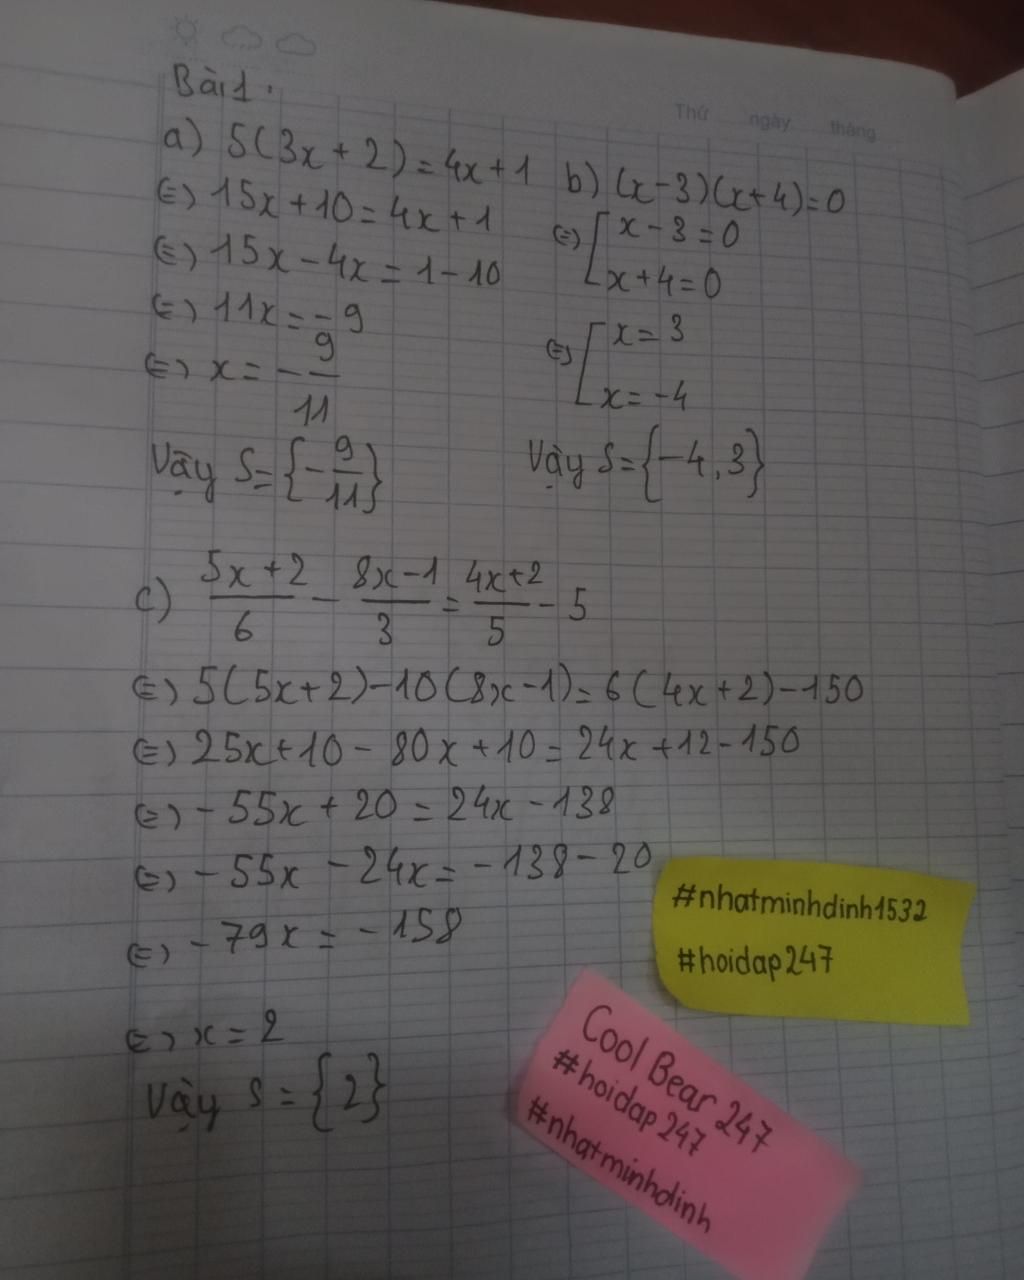 Thứ ngày tháng
Bài 1.
a) 5(3x+2)=4x+1
(=) 15x+10=4x+1
(=) 15x-4x=1-10
(=) 11x=-9
(=) x=-9/11
Vậy S={-9/11}
b) (x-3)(x+4)=0
(=) [x-3=0
x+4=0
(=) [x=3
x=-4
Vậy S={-4,3}
c) (5x+2)/6 - (8x-1)/3 = (4x+2)/5 - 5
(=) 5(5x+2)-10(8x-1)=6(4x+2)-150
(=) 25x+10-80x+10=24x+12-150
(=) -55x+20=24x-138
(=) -55x-24x=-138-20
(=) -79x=-158
(=) x=2
Vậy S={2}
#nhatminhdinh1532
#hoidap247
Cool Bear 247
#hoidap247
#nhatminhdinh